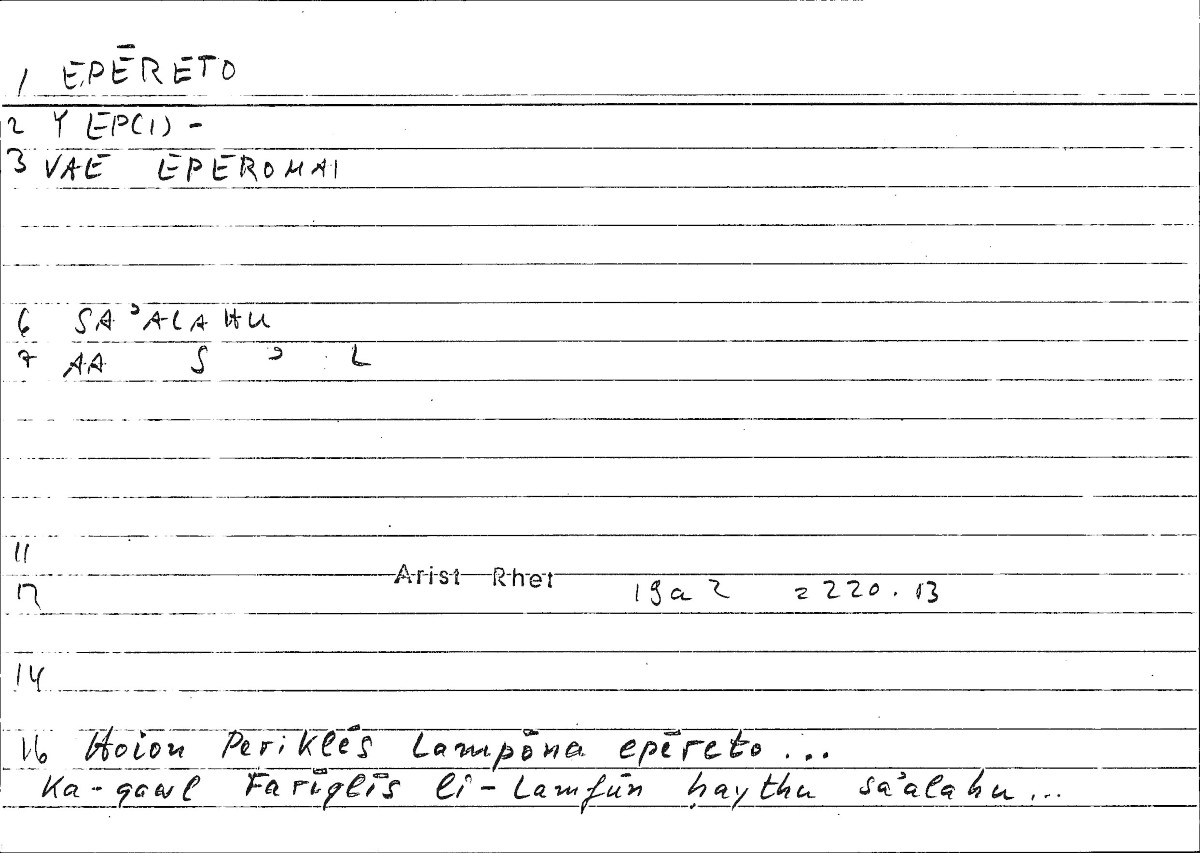 1 EPĒRETO
2 Y EP(I) -
3 VAE EPEROMAI
6 SA'ALAHU
7 AA S ' L
11
12 Arist Rhet 19a2 =220.13
14
16 Hoion Periklēs Lampōna epēreto...
Ka-qawl Farīqlīs li-Lamfūn ḥaythu sa'alahu...